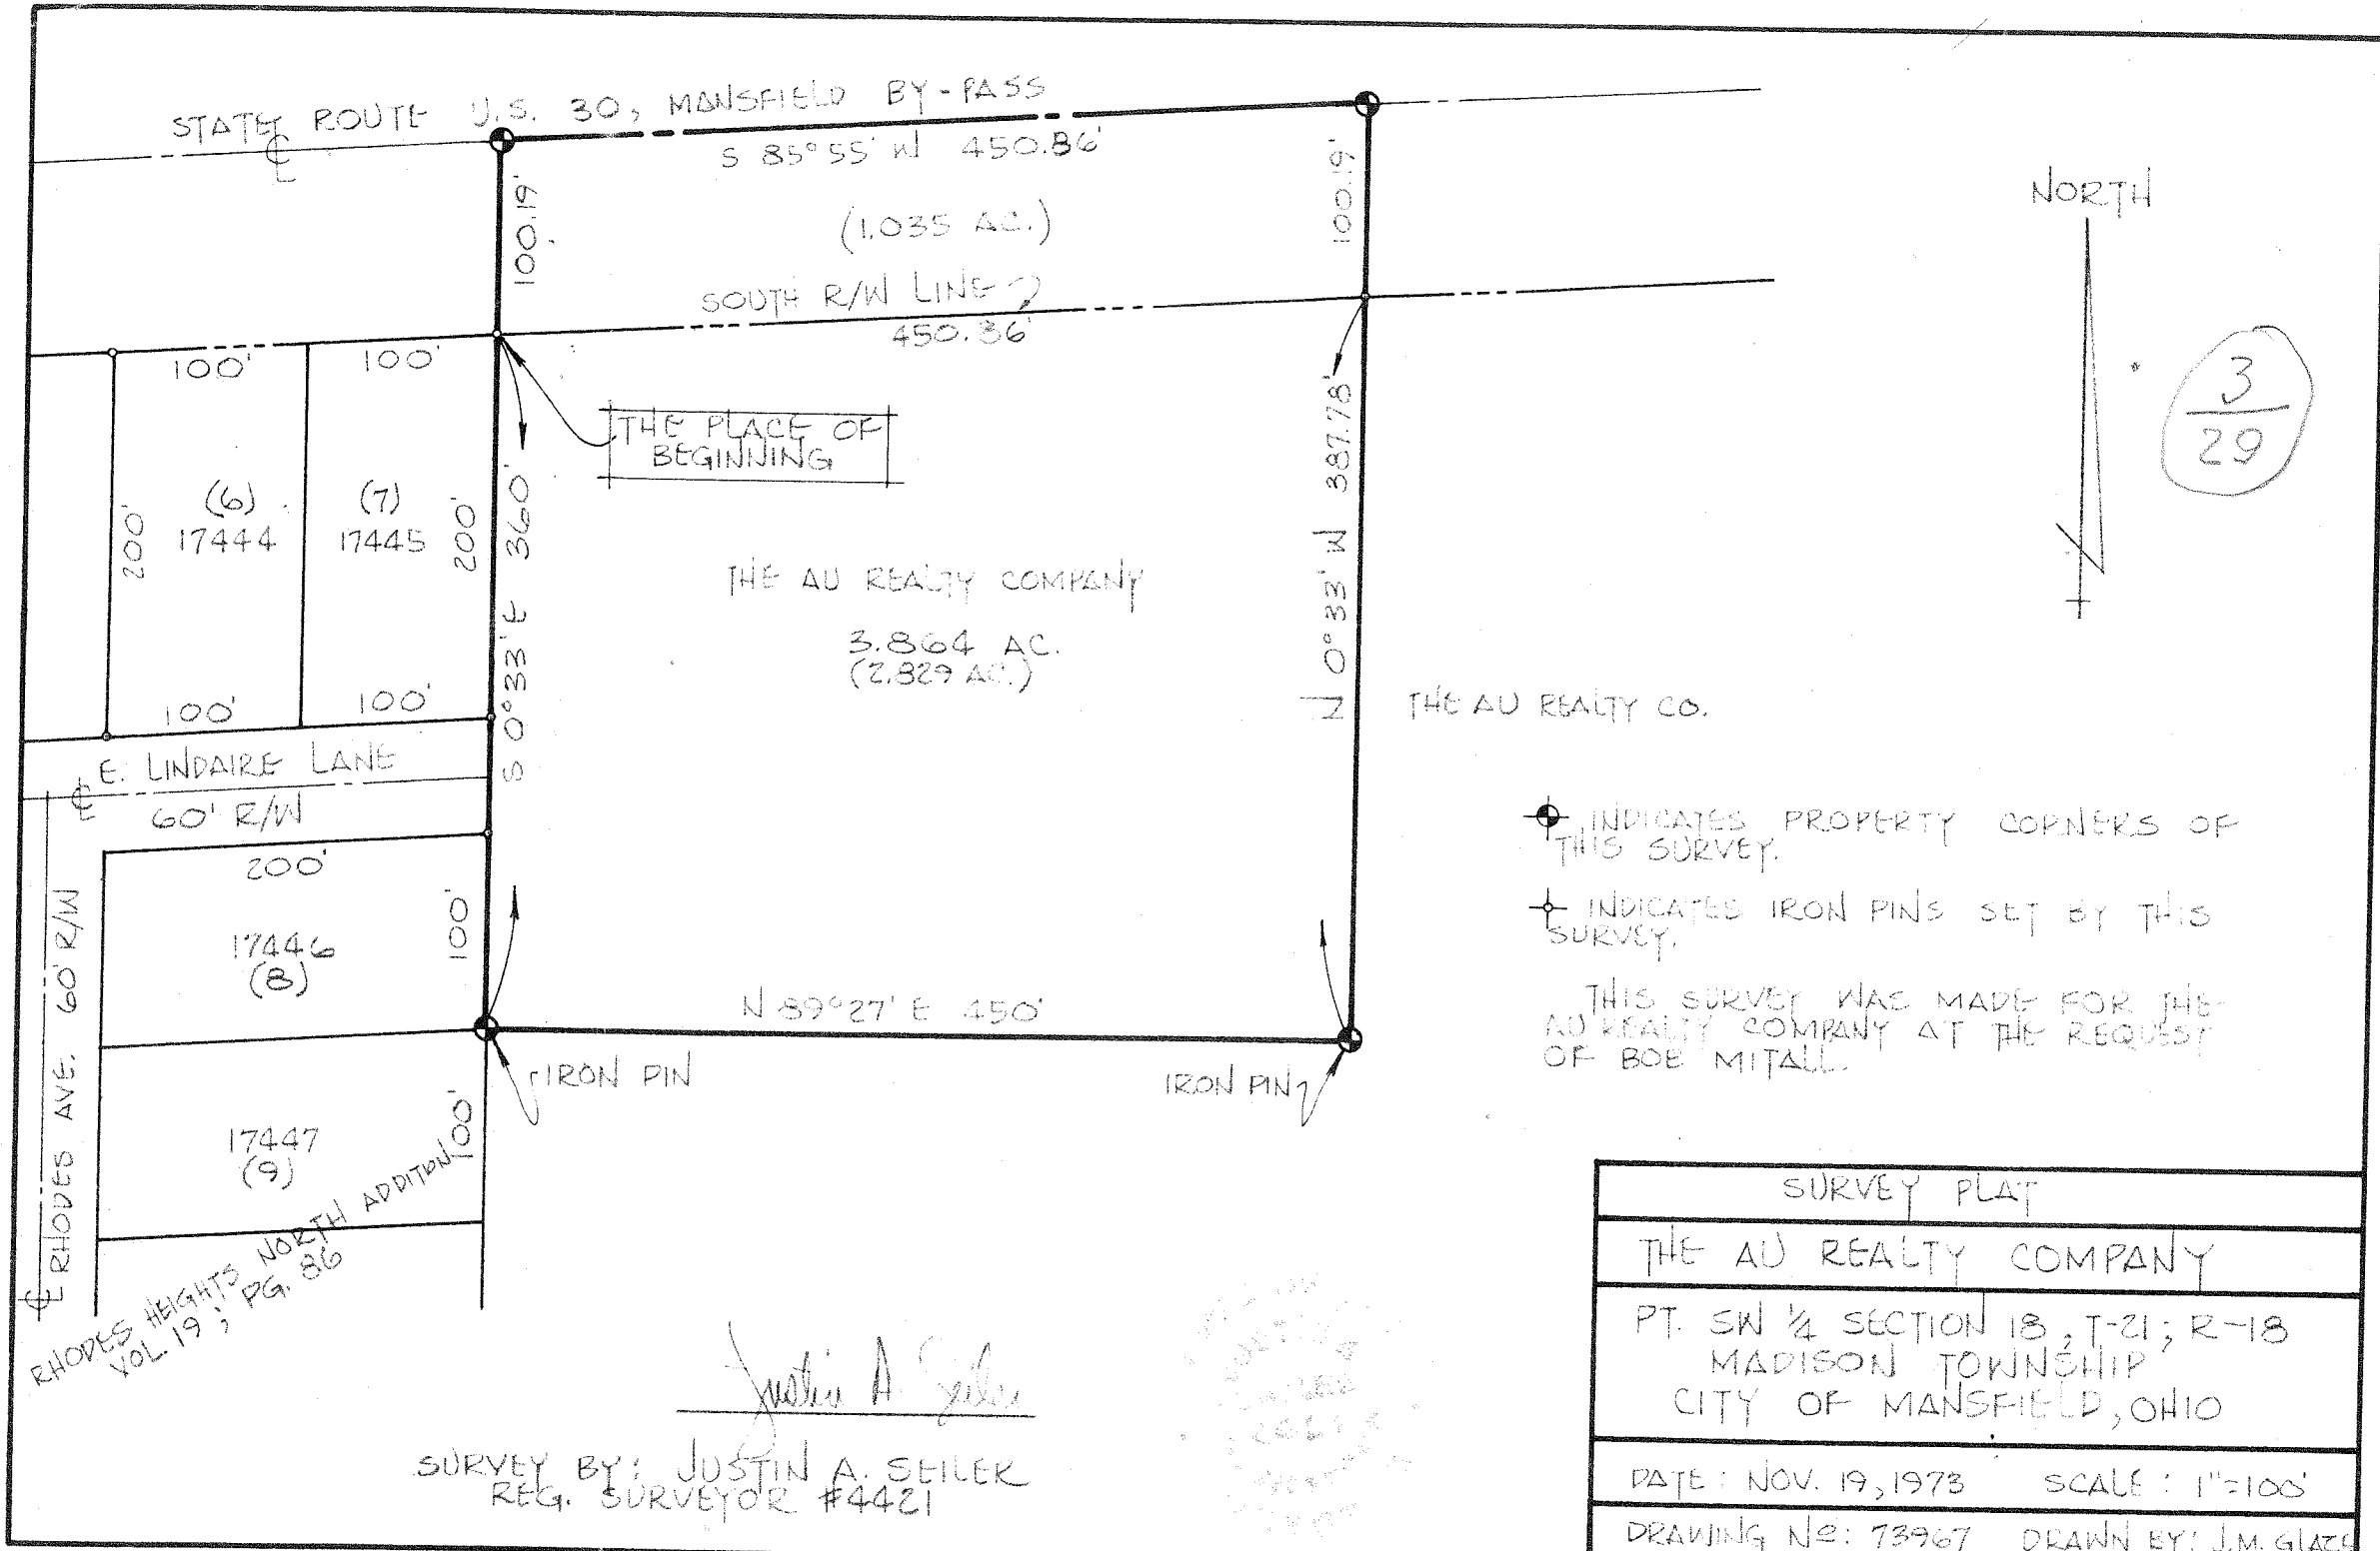 STATE ROUTE U.S. 30, MANSFIELD BY-PASS
℄
S 85°55' W 450.86'
100.19'
(1.035 AC.)
100.19'
SOUTH R/W LINE
450.86'
NORTH
3
29
100' 100'
THE PLACE OF
BEGINNING
200'
(6)
17444
(7)
17445
200'
S 0°33' E 360'
N 0°33' W 387.78'
THE AU REALTY COMPANY
3.864 AC.
(2.829 AC.)
100' 100'
THE AU REALTY CO.
E. LINDAIRE LANE
℄
60' R/W
200'
17446
(8)
100'
℄ RHODES AVE. 60' R/W
N 89°27' E 450'
IRON PIN
IRON PIN
17447
(9)
100'
RHODES HEIGHTS NORTH ADDITION
VOL. 19; PG. 86
INDICATES PROPERTY CORNERS OF
THIS SURVEY.
INDICATES IRON PINS SET BY THIS
SURVEY.
THIS SURVEY WAS MADE FOR THE
AU REALTY COMPANY AT THE REQUEST
OF BOB MITALL.
Justin A. Seiler
SURVEY BY: JUSTIN A. SEILER
REG. SURVEYOR #4421
SURVEY PLAT
THE AU REALTY COMPANY
PT. SW ¼ SECTION 18, T-21; R-18
MADISON TOWNSHIP
CITY OF MANSFIELD, OHIO
DATE: NOV. 19, 1973 SCALE: 1"=100'
DRAWING Nº: 73967 DRAWN BY: J.M.